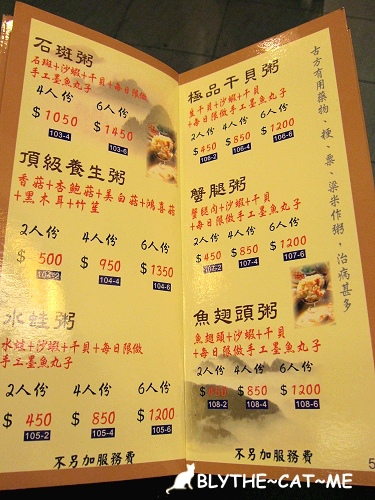 石斑粥
石斑+沙蝦+干貝+每日限做
手工墨魚丸子
4人份 6人份
$1050 $1450
103-4 103-6
頂級養生粥
香菇+杏鮑菇+美白菇+鴻喜菇
+黑木耳+竹笙
2人份 4人份 6人份
$500 $950 $1350
104-2 104-4 104-6
水蛙粥
水蛙+沙蝦+干貝+每日限做
手工墨魚丸子
2人份 4人份 6人份
$450 $850 $1200
105-2 105-4 105-6
不另加服務費
極品干貝粥
生干貝+沙蝦+干貝
+每日限做手工墨魚丸子
2人份 4人份 6人份
$450 $850 $1200
106-2 106-4 106-6
蟹腿粥
蟹腿肉+沙蝦+干貝
+每日限做手工墨魚丸子
2人份 4人份 6人份
$450 $850 $1200
107-2 107-4 107-6
魚翅頭粥
魚翅頭+沙蝦+干貝
+每日限做手工墨魚丸子
2人份 4人份 6人份
$450 $850 $1200
108-2 108-4 108-6
不另加服務費
古方有用藥物、粳、粟、粱米作粥，治病甚多
5
BLYTHE~CAT~ME